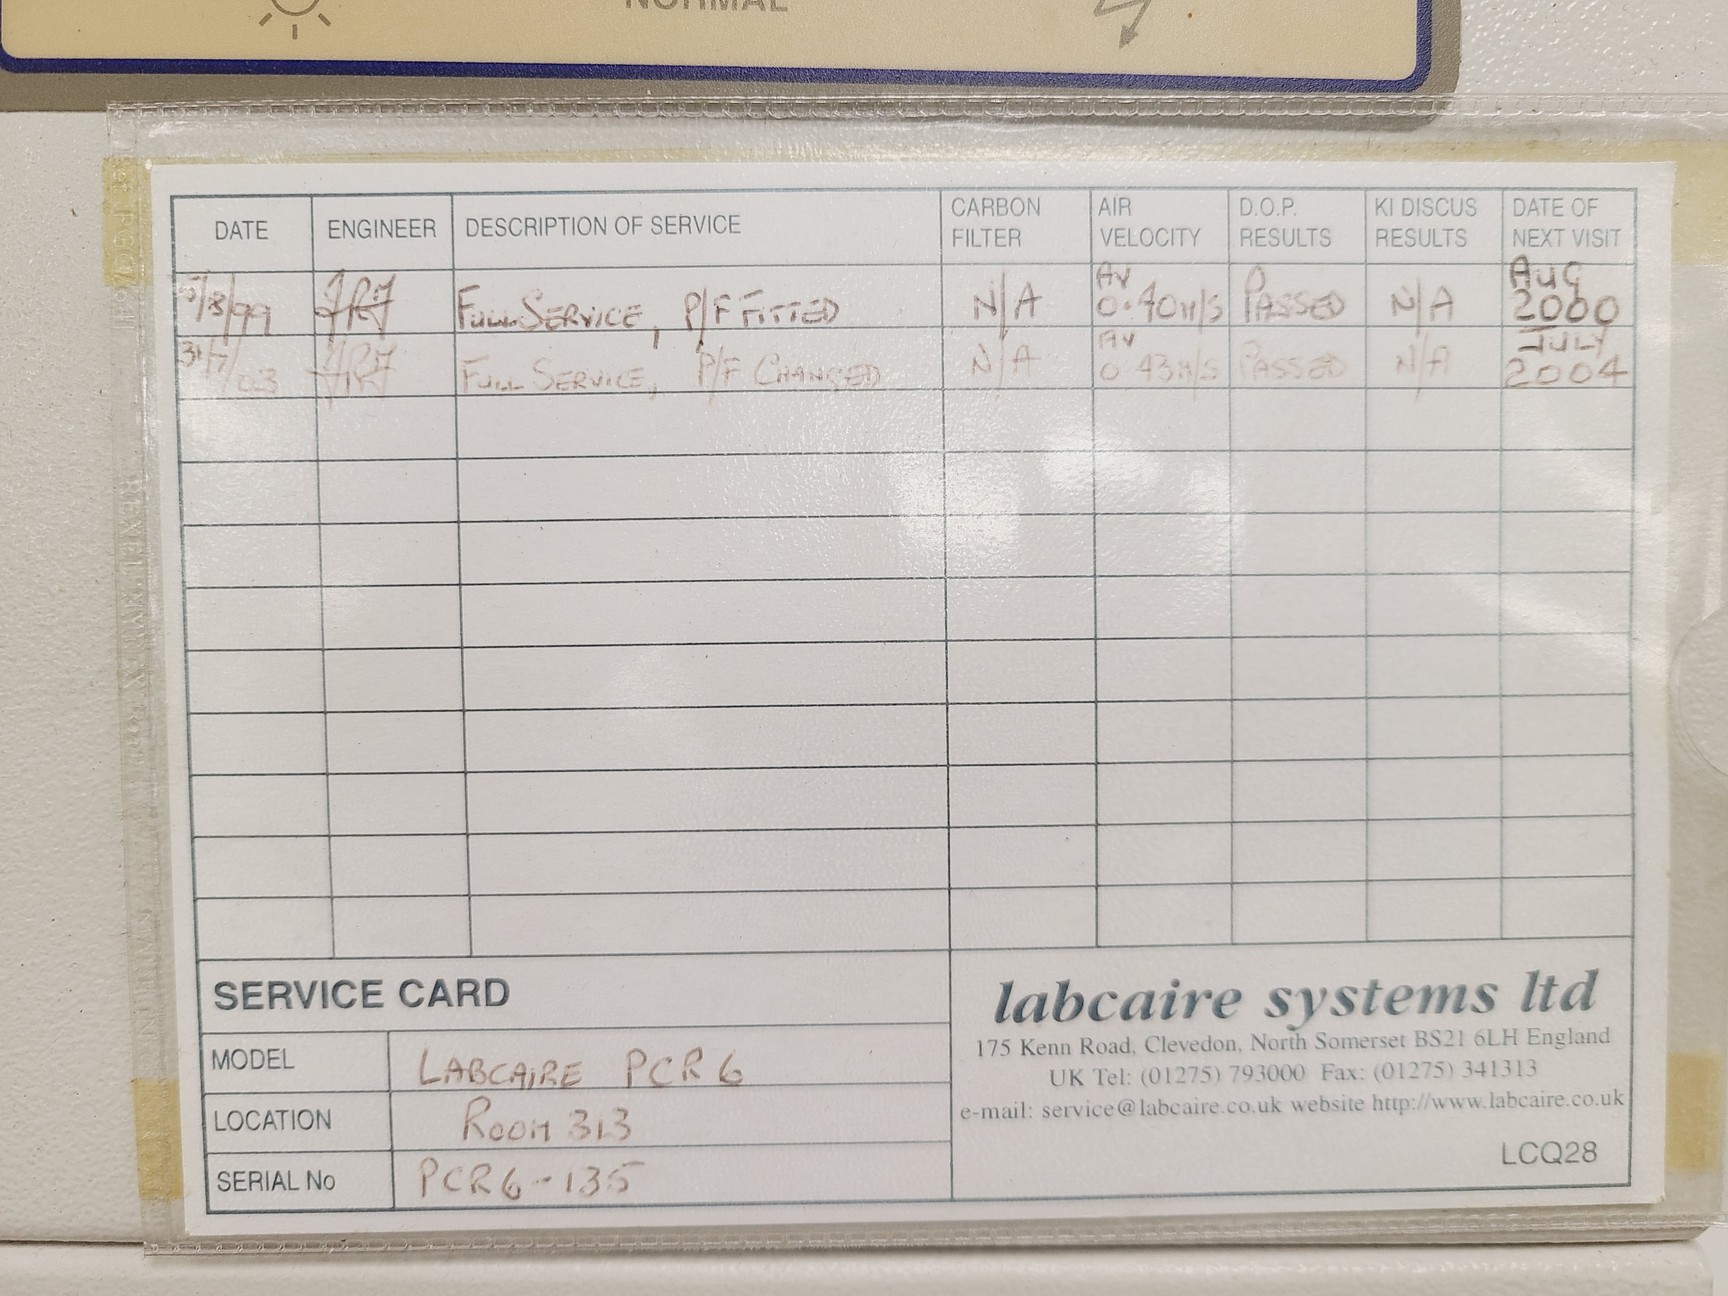 NORMAL
DATE ENGINEER DESCRIPTION OF SERVICE CARBON FILTER AIR VELOCITY D.O.P. RESULTS KI DISCUS RESULTS DATE OF NEXT VISIT
5/8/99 FULL SERVICE, P/F FITTED N/A AV 0.40M/S PASSED N/A AUG 2000
31/7/03 FULL SERVICE, P/F CHANGED N/A AV 0.43M/S PASSED N/A JULY 2004
SERVICE CARD
MODEL LABCAIRE PCR6
LOCATION ROOM 313
SERIAL No PCR6-135
labcaire systems ltd
175 Kenn Road, Clevedon, North Somerset BS21 6LH England
UK Tel: (01275) 793000 Fax: (01275) 341313
e-mail: service@labcaire.co.uk website http://www.labcaire.co.uk
LCQ28